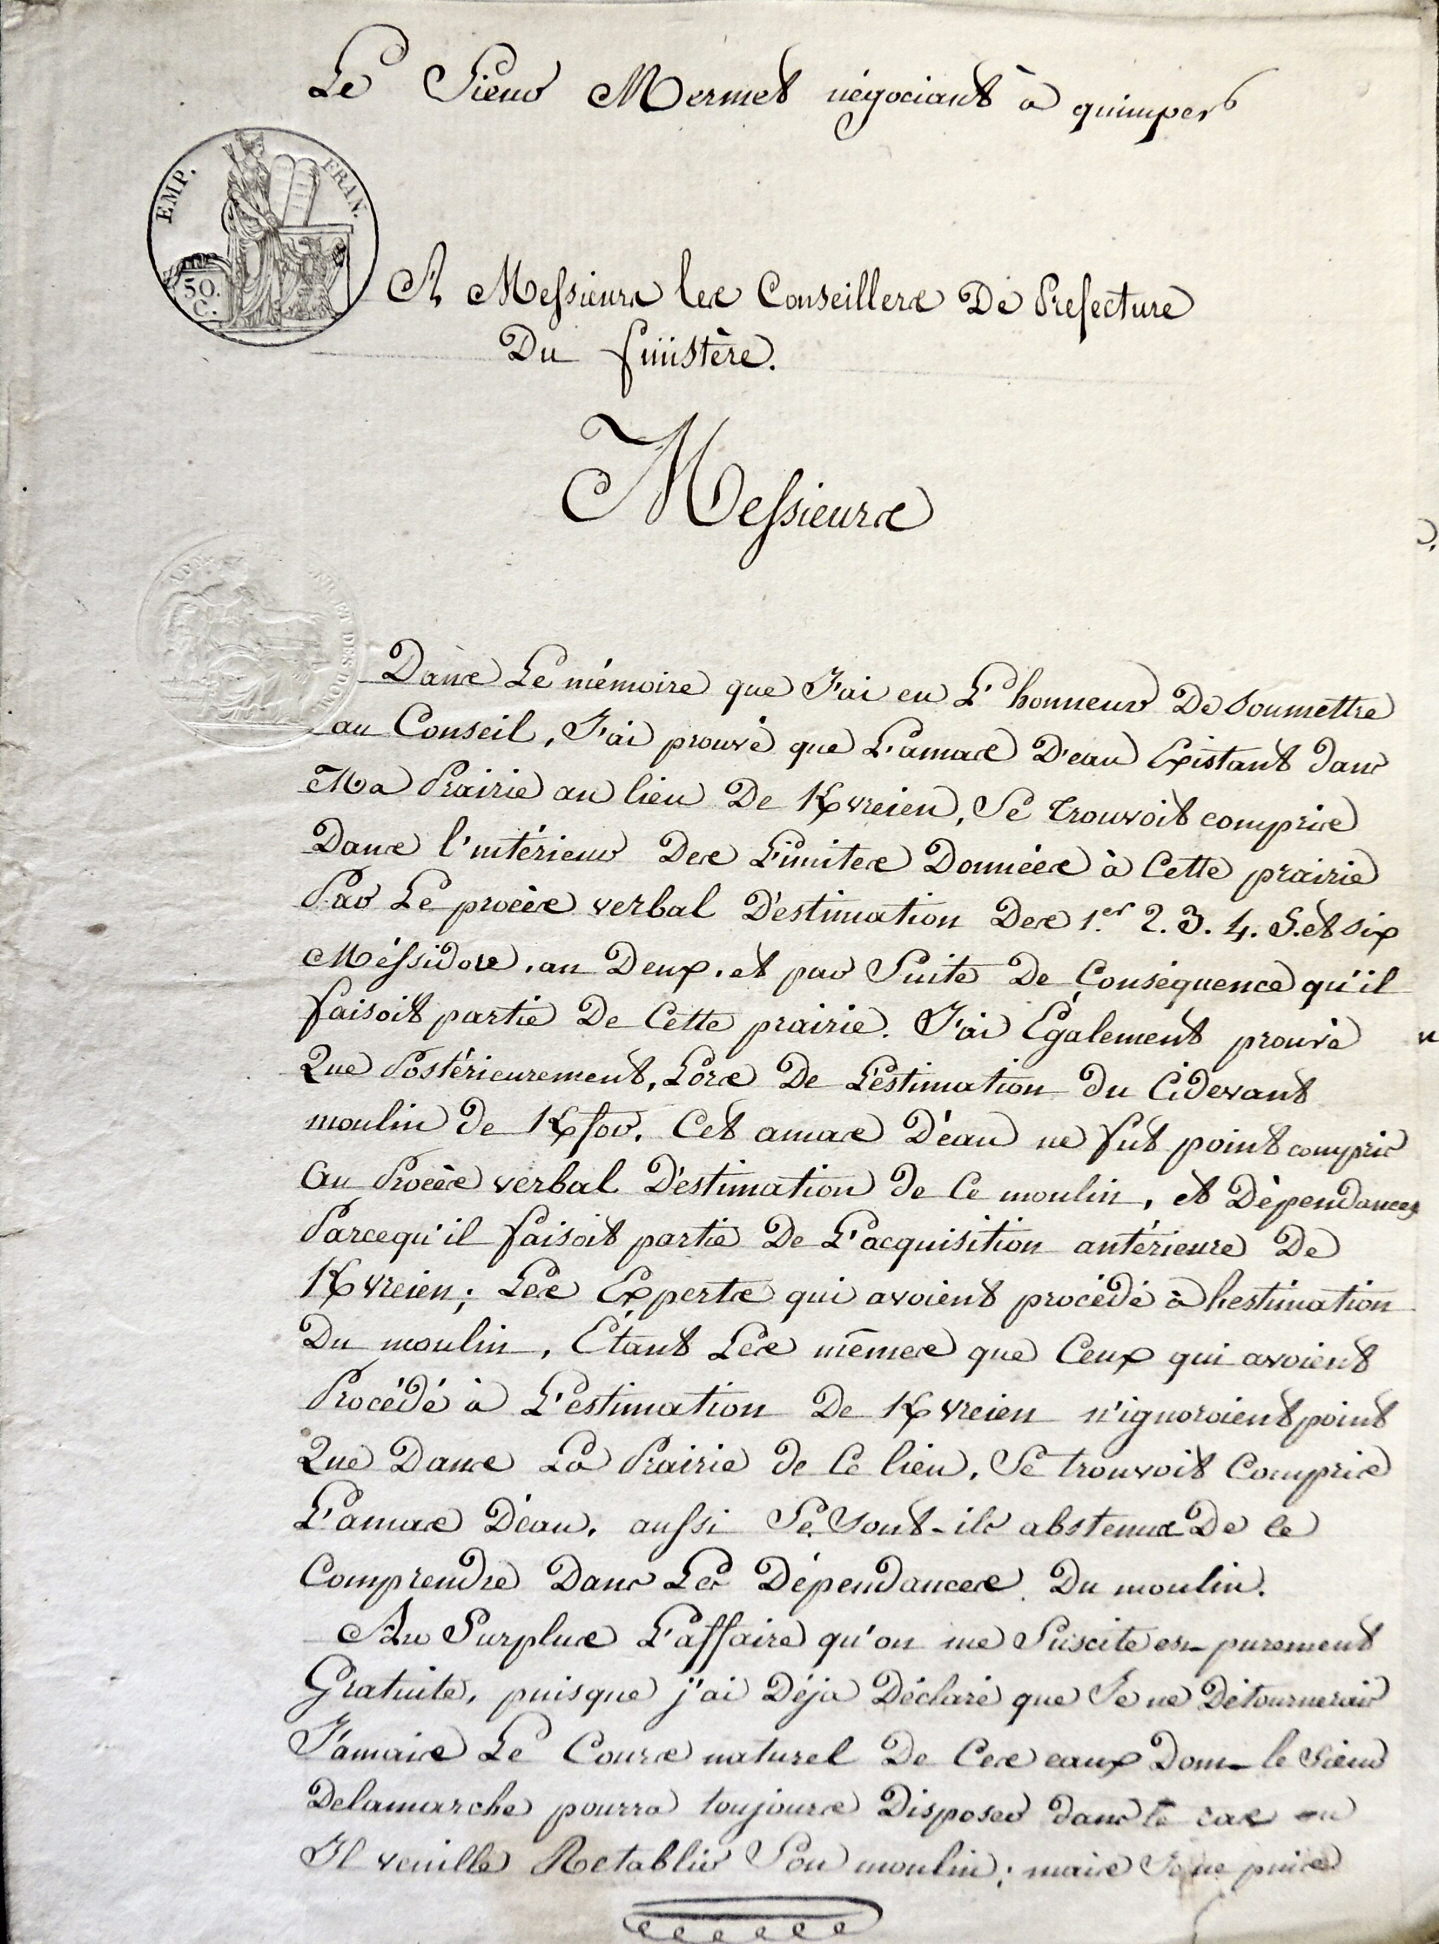 Le Sieur Mermet négociant à quimper
EMP. FRAN.
50.
C.
A Messieurs les Conseillers De Prefecture
Du finistère.
Messieurs
Dans Le mémoire que J'ai eu L'honneur De Soumettre
au Conseil, J'ai prouvé que L'amas D'eau Existant dans
Ma Prairie au lieu De Kvreien, Se trouvoit compris
Dans l'intérieur Des Limites Données à Cette prairie
Par Le procès verbal D'estimation Des 1.er 2. 3. 4. 5. et six
Méssidore, an Deux, et par Suite De Conséquence qu'il
faisoit partie De Cette prairie. J'ai Également prouvé
Que Postérieurement, Lors De L'estimation du Cidevant
moulin de Kfor, Cet amas D'eau ne fut point compris
au Procès verbal D'estimation de Ce moulin, et Dépendances
Parcequ'il faisoit partie De L'acquisition antérieure De
Kvreien; Les Experts qui avoient procédé à lestimation
Du moulin, Etant Les mêmes que Ceux qui avoient
Procédé à L'estimation De Kvreien n'ignoroient point
Que Dans La Prairie de Ce lieu, Se trouvoit Compris
L'amas D'eau, aussi Se Sont-ils abstenus De le
Comprendre Dans Les Dépendances Du moulin.
Au Surplus L'affaire qu'on me Suscite est purement
Gratuite, puisque j'ai Déja Déclaré que Je ne Détournerais
Jamais Le Cours naturel De Ces eaux Dont le Sieur
Delamarche pourra toujours Disposer dans le cas ou
Il veuille Retablir Son moulin; mais Je ne puis